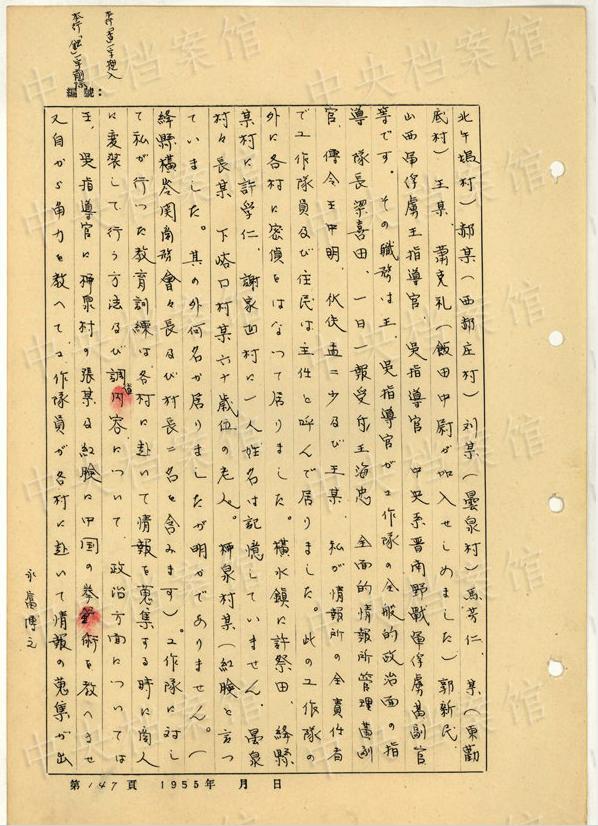 本行「査」一字挿入
本行「鉄」一字削除
編號：
北午塢村）郝某（西郝庄村）刘某（曇泉村）馬芳仁、某（東勸
底村）王某、蕭克礼（飯田中尉が加入せしめました）郭新民、
山西軍俘虜王指導官、吳指導官、中央系晋南野戰軍俘虜黃副官
等です。その職務は王、吳指導官が工作隊の全般的政治面の指
導、隊長梁喜田、一日一報受所王海忠、全面的情報所管理黃副
官、傳令王中明、伙伕孟二少及び王某、私が情報所の全責任者
で工作隊員及び住民は主任と呼んで居りました。此の工作隊の
外に各村に密偵をはなつて居りました。橫水鎮に許祭田、絳縣
某村に許学仁、謝家凹村に一人姓名は記憶していません、曇泉
村々長某、下塔口村某六十歲位の老人。柳泉村某（紅臉と言つ
ていました。其の外何名か居りましたが明かでありません。（
絳縣橫岺関商務會々長及び村長二名を含みます）。工作隊に対し
て私が行つた教育訓練は各村に赴いて情報を蒐集する時に商人
に変装して行う方法及び調查內容について、政治方面については
王、吳指導官に柳泉村の張某及紅臉に中国の拳術を教へさせ
又自から角力を教へて、工作隊員が各村に赴いて情報の蒐集が出
永富博之
第147頁 1955年 月 日
中央档案馆